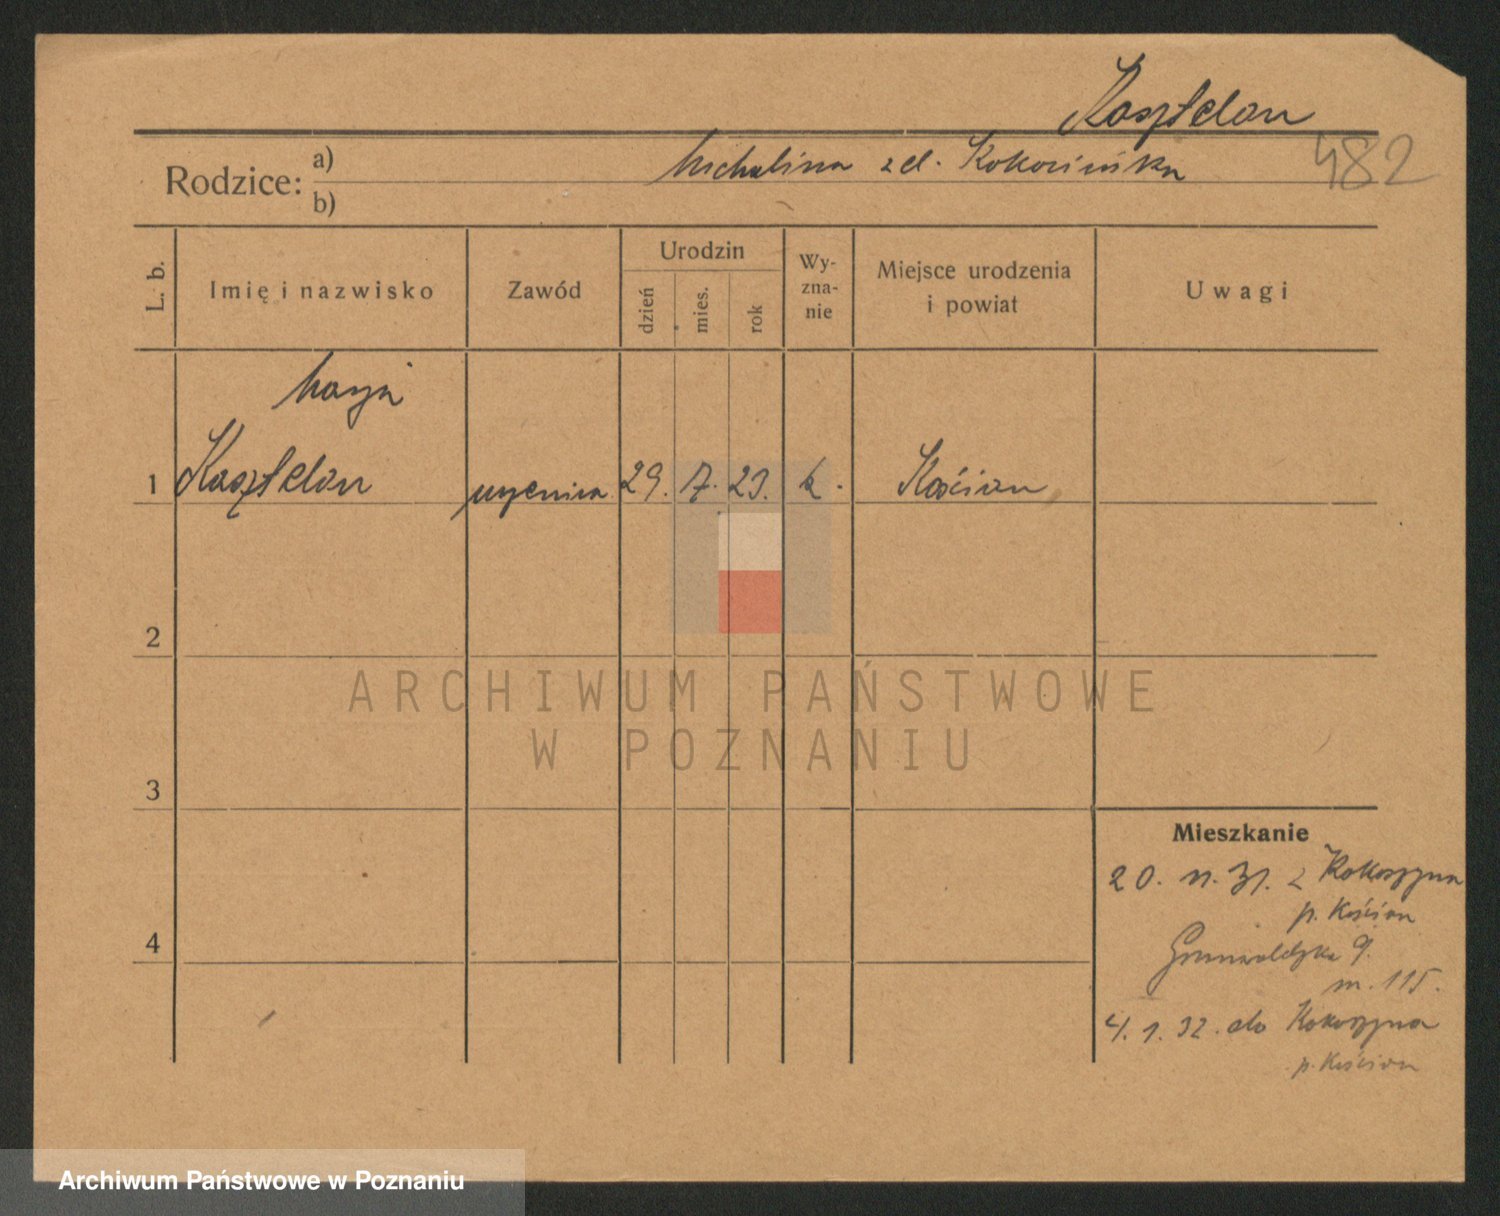 Kasztelan
Rodzice: a) Michalina zd. Kokocińska
482
b)
L. b. Imię i nazwisko Zawód Urodzin dzień mies. rok Wy-zna-nie Miejsce urodzenia i powiat Uwagi
Maria
1 Kasztelan uczenica 29. 7. 23. k. Kościan
2
ARCHIWUM PAŃSTWOWE
W POZNANIU
3
Mieszkanie
20. 11. 31. z Kokoszyna
p. Kościan
4
Grunwaldzka 9.
m. 115.
4. 1. 32. do Kokoszyna
p. Kościan
Archiwum Państwowe w Poznaniu